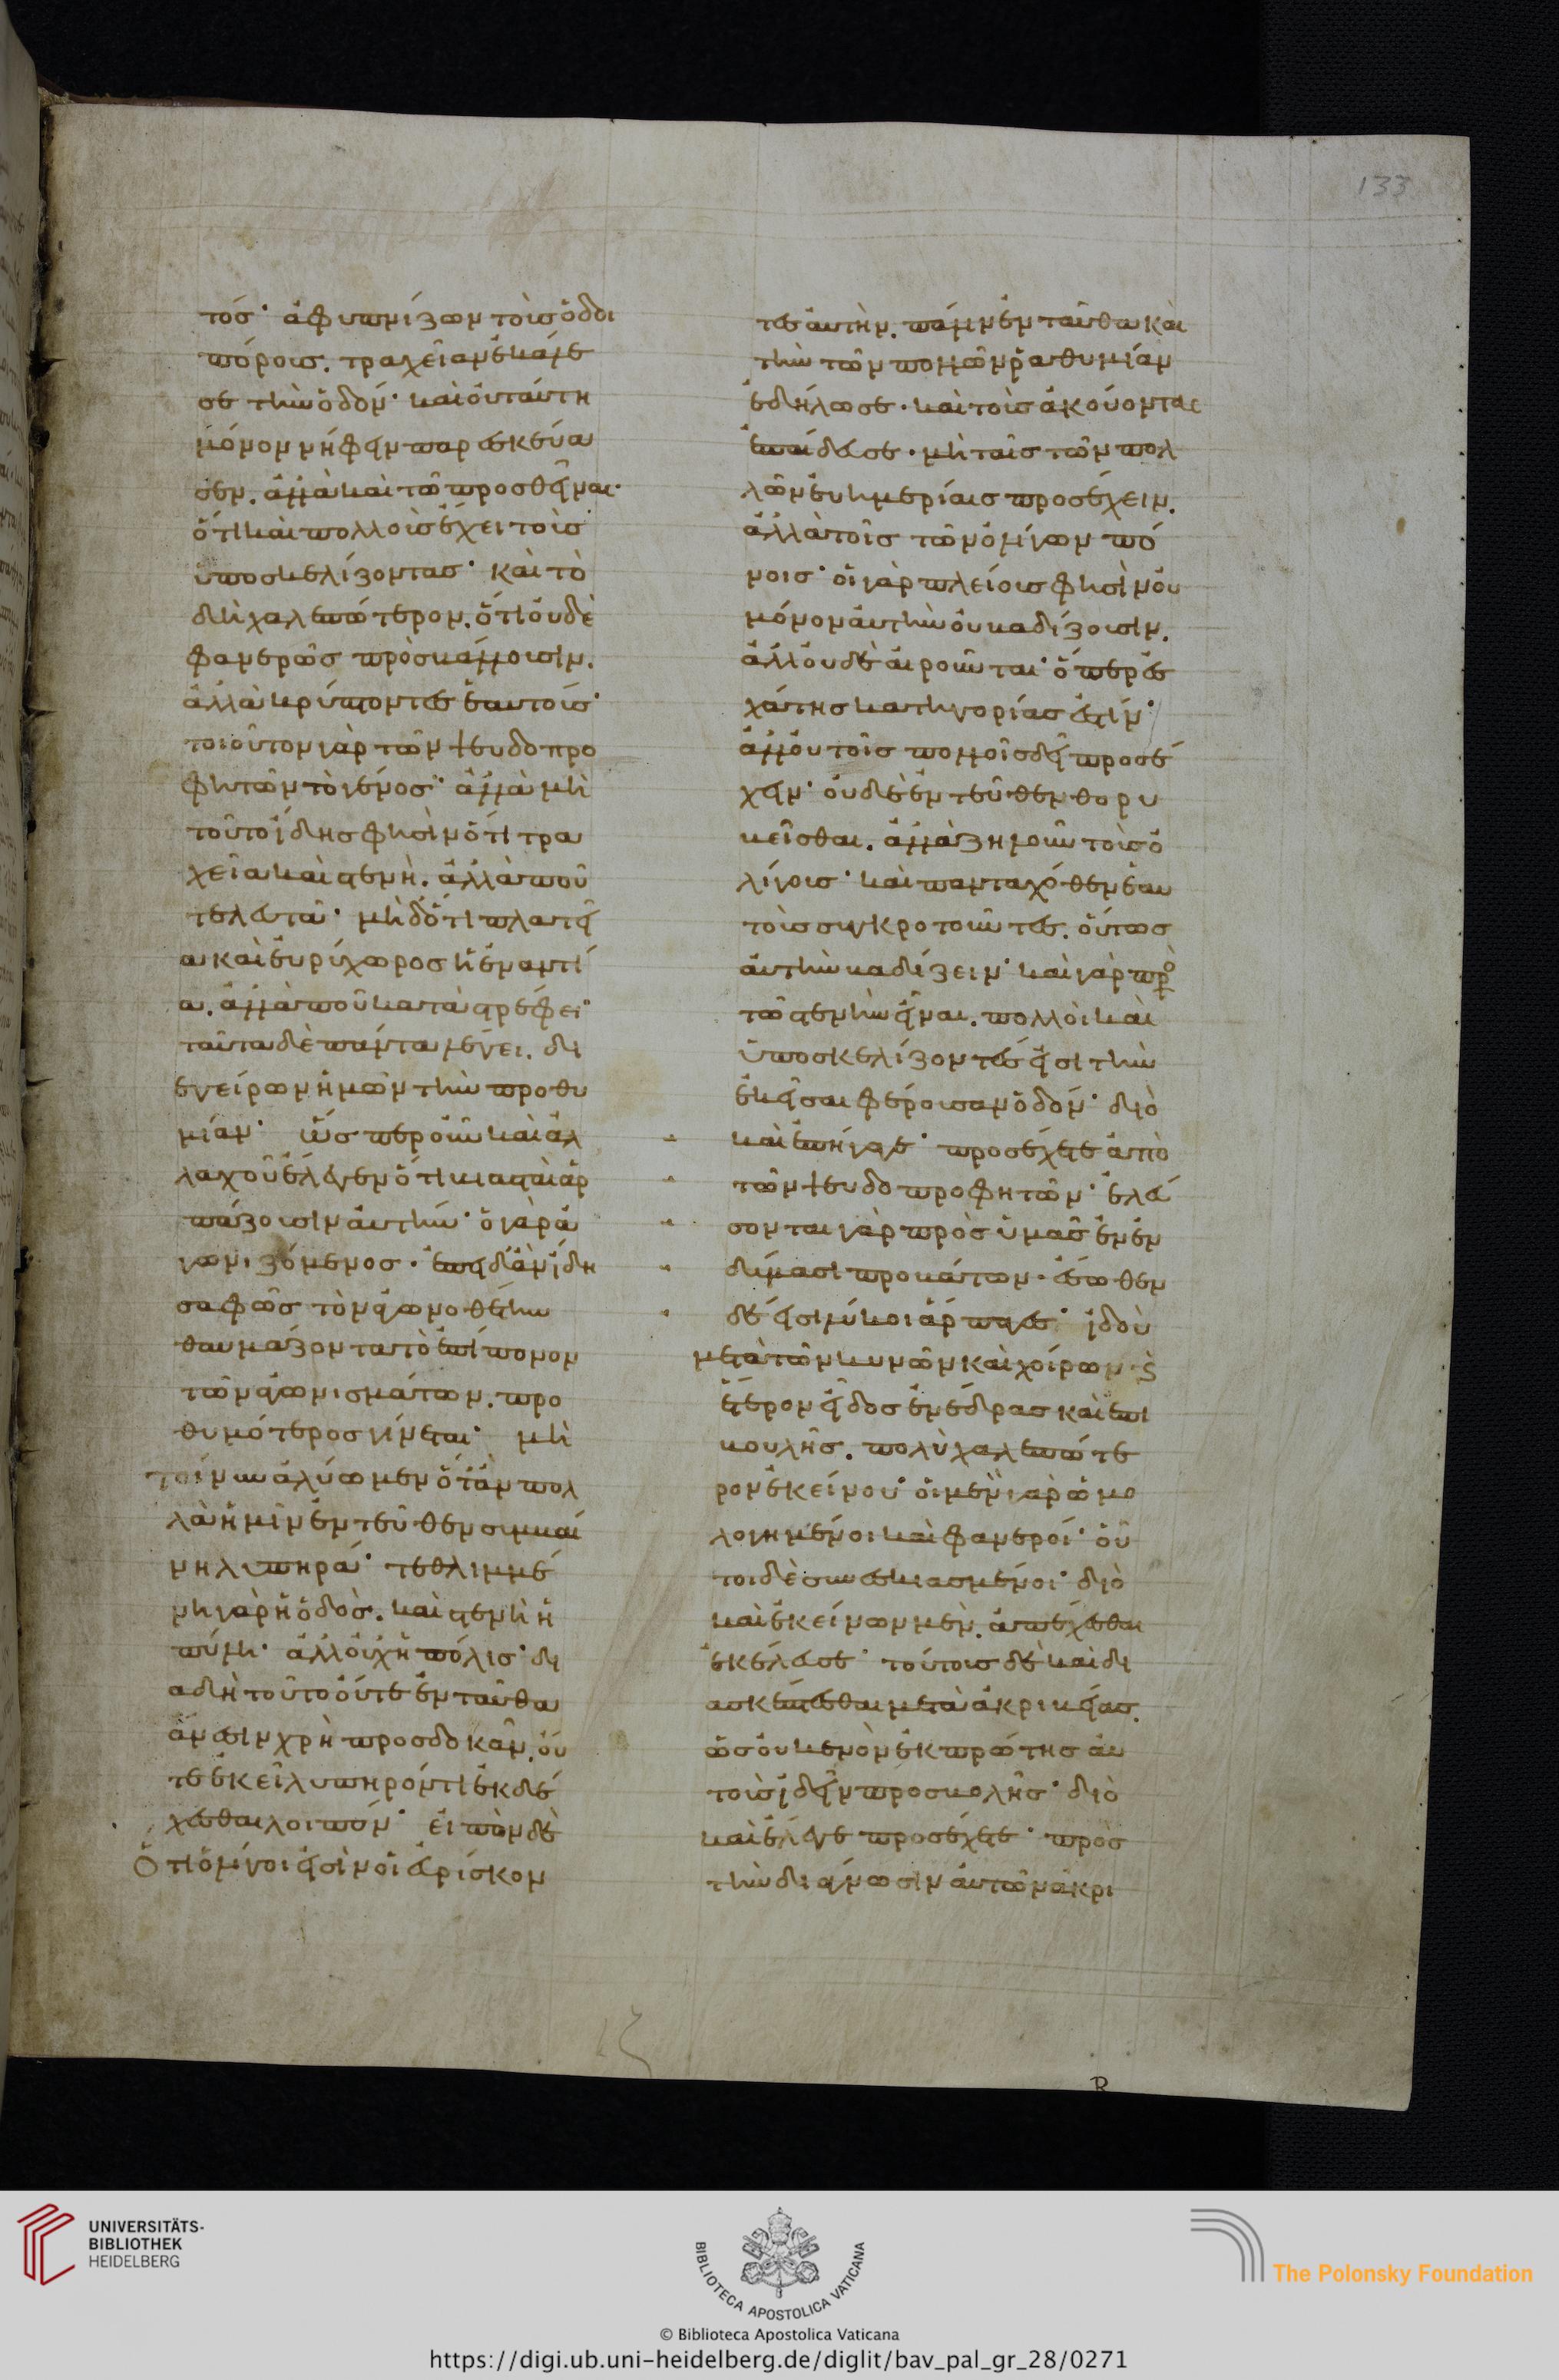 133
τός· ἀφυπνίζων τοὺς ὁδοι
πόρους. τραχεῖαν ἐκάλε
σε τὴν ὁδόν· καὶ οὐ ταύτη
μόνον νήφειν παρεσκεύα
σεν. ἀλλὰ καὶ τῶ προσθεῖναι·
ὅτι καὶ πολλοὺς ἔχει τοὺς
ὑποσκελίζοντας· καὶ τὸ
δὴ χαλεπώτερον. ὅτι οὐδὲ
φανερῶς προσβάλλουσιν.
ἀλλὰ κρύπτοντες ἑαυτούς·
τοιοῦτον γὰρ τῶν ψευδοπρο
φητῶν τὸ γένος· ἀλλὰ μὴ
τοῦτο ἴδης φησὶν ὅτι τρα
χεῖα καὶ στενὴ. ἀλλὰ ποῦ
τελευτᾶ· μὴ δ᾽ ὅτι πλατεῖ
α καὶ εὐρύχωρος ἡ ἐναντί
α. ἀλλὰ ποῦ καταστρέφει·
ταῦτα δὲ πάντα λέγει. δι
εγείρων ἡμῶν τὴν προθυ
μίαν· ὥσπερ οὖν καὶ ἀλ
λαχοῦ ἔλεγεν ὅτι βιασταὶ ἁρ
πάζουσιν αὐτήν· ὁ γὰρ ἀ
γωνιζόμενος. ἐπειδ᾽ ἂν ἴδη
σαφῶς τὸν ἀγωνοθέτην
θαυμάζοντα τὸ ἐπίπονον
τῶν ἀγωνισμάτων. προ
θυμότερος γίνεται· μὴ
τοίνυν ἀλύωμεν ὅτ᾽ ἂν πολ
λὰ ἡμῖν ἐντεῦθεν συμβαί
νη λυπηρά· τεθλιμμέ
νη γὰρ ἡ ὁδὸς. καὶ στενὴ ἡ
πύλη· ἀλλ᾽ οὐχ ἡ πόλις· δι
α δὴ τοῦτο οὔτε ἐνταῦθα
ἄνεσιν χρὴ προσδοκᾶν. οὔ
τε ἐκεῖ λυπηρόν τι ἐκδέ
χεσθαι λοιπόν· εἰπὼν δὲ
Ὅτι ὀλίγοι εἰσὶν οἱ εὑρίσκον
τες αὐτὴν. πάλιν ἐνταῦθα καὶ
τὴν τῶν πολλῶν ῥαθυμίαν
ἐδήλωσε. καὶ τοὺς ἀκούοντας
ἐπαίδευσε. μὴ ταῖς τῶν πολ
λῶν εὐημερίαις προσέχειν.
ἀλλὰ τοῖς τῶν ὀλίγων πό
νοις· οἱ γὰρ πλείους φησὶν οὐ
μόνον αὐτὴν οὐ βαδίζουσιν.
ἀλλ᾽ οὐδὲ αἱροῦνται· ὅπερ ἐσ
χάτης κατηγορίας ἐστίν·
ἀλλ᾽ οὐ τοῖς πολλοῖς δεῖ προσέ
χειν· οὐδὲ ἐντεῦθεν θορυ
βεῖσθαι. ἀλλὰ ζηλοῦν τοὺς ὀ
λίγους· καὶ πανταχόθεν ἑαυ
τοὺς συγκροτοῦντες. οὕτως
αὐτὴν βαδίζειν· καὶ γὰρ πρὸ
τῶ στενὴν εἶναι. πολλοὶ καὶ
ὑποσκελίζοντές εἰσι τὴν
ἐκεῖσαι φέρουσαν ὁδόν· διὸ
καὶ ἐπήγαγε· προσέχετε ἀπὸ
τῶν ψευδοπροφητῶν· ἐλεύ
σονται γὰρ πρὸς ὑμᾶς ἐν ἐν
δύμασι προβάτων. ἔσωθεν
δέ εἰσι λύκοι ἅρπαγες· ἰδοὺ
μετὰ τῶν κυνῶν καὶ χοίρων· ϛ̀
ἕτερον εἶδος ἐνέδρας καὶ ἐπι
βουλῆς. πολὺ χαλεπώτε
ρον ἐκείνου· οἱ μὲν γὰρ ὡμο
λογημένοι καὶ φανεροί· οὗ
τοι δὲ συνεσκιασμένοι· διὸ
καὶ ἐκείνων μὲν. ἀπέχεσθαι
ἐκέλευσε· τούτους δὲ καὶ δι
ασκέπτεσθαι μετὰ ἀκριβείας.
ὡς οὐκ ἐνὸν ἐκ πρώτης αὐ
τοὺς ἰδεῖν προσβολῆς· διὸ
καὶ ἔλεγε προσέχετε· πρὸς
τὴν διάγνωσιν αὐτῶν ἀκρι
UNIVERSITÄTS-
BIBLIOTHEK
HEIDELBERG
BIBLIOTECA APOSTOLICA VATICANA
The Polonsky Foundation
© Biblioteca Apostolica Vaticana
https://digi.ub.uni-heidelberg.de/diglit/bav_pal_gr_28/0271